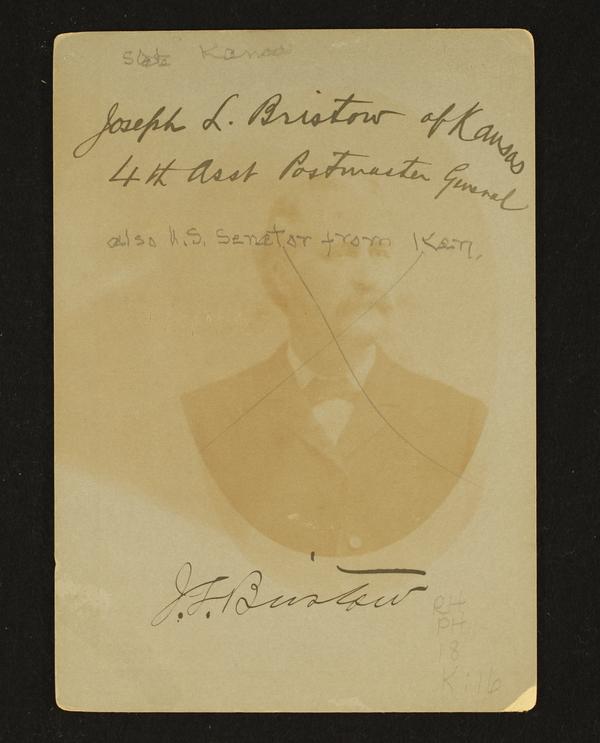 State Kansas
Joseph L. Bristow of Kansas
4th Asst Postmaster General
also U.S. Senator from Kan.
J. L. Bristow
RH
PH
18
K:16